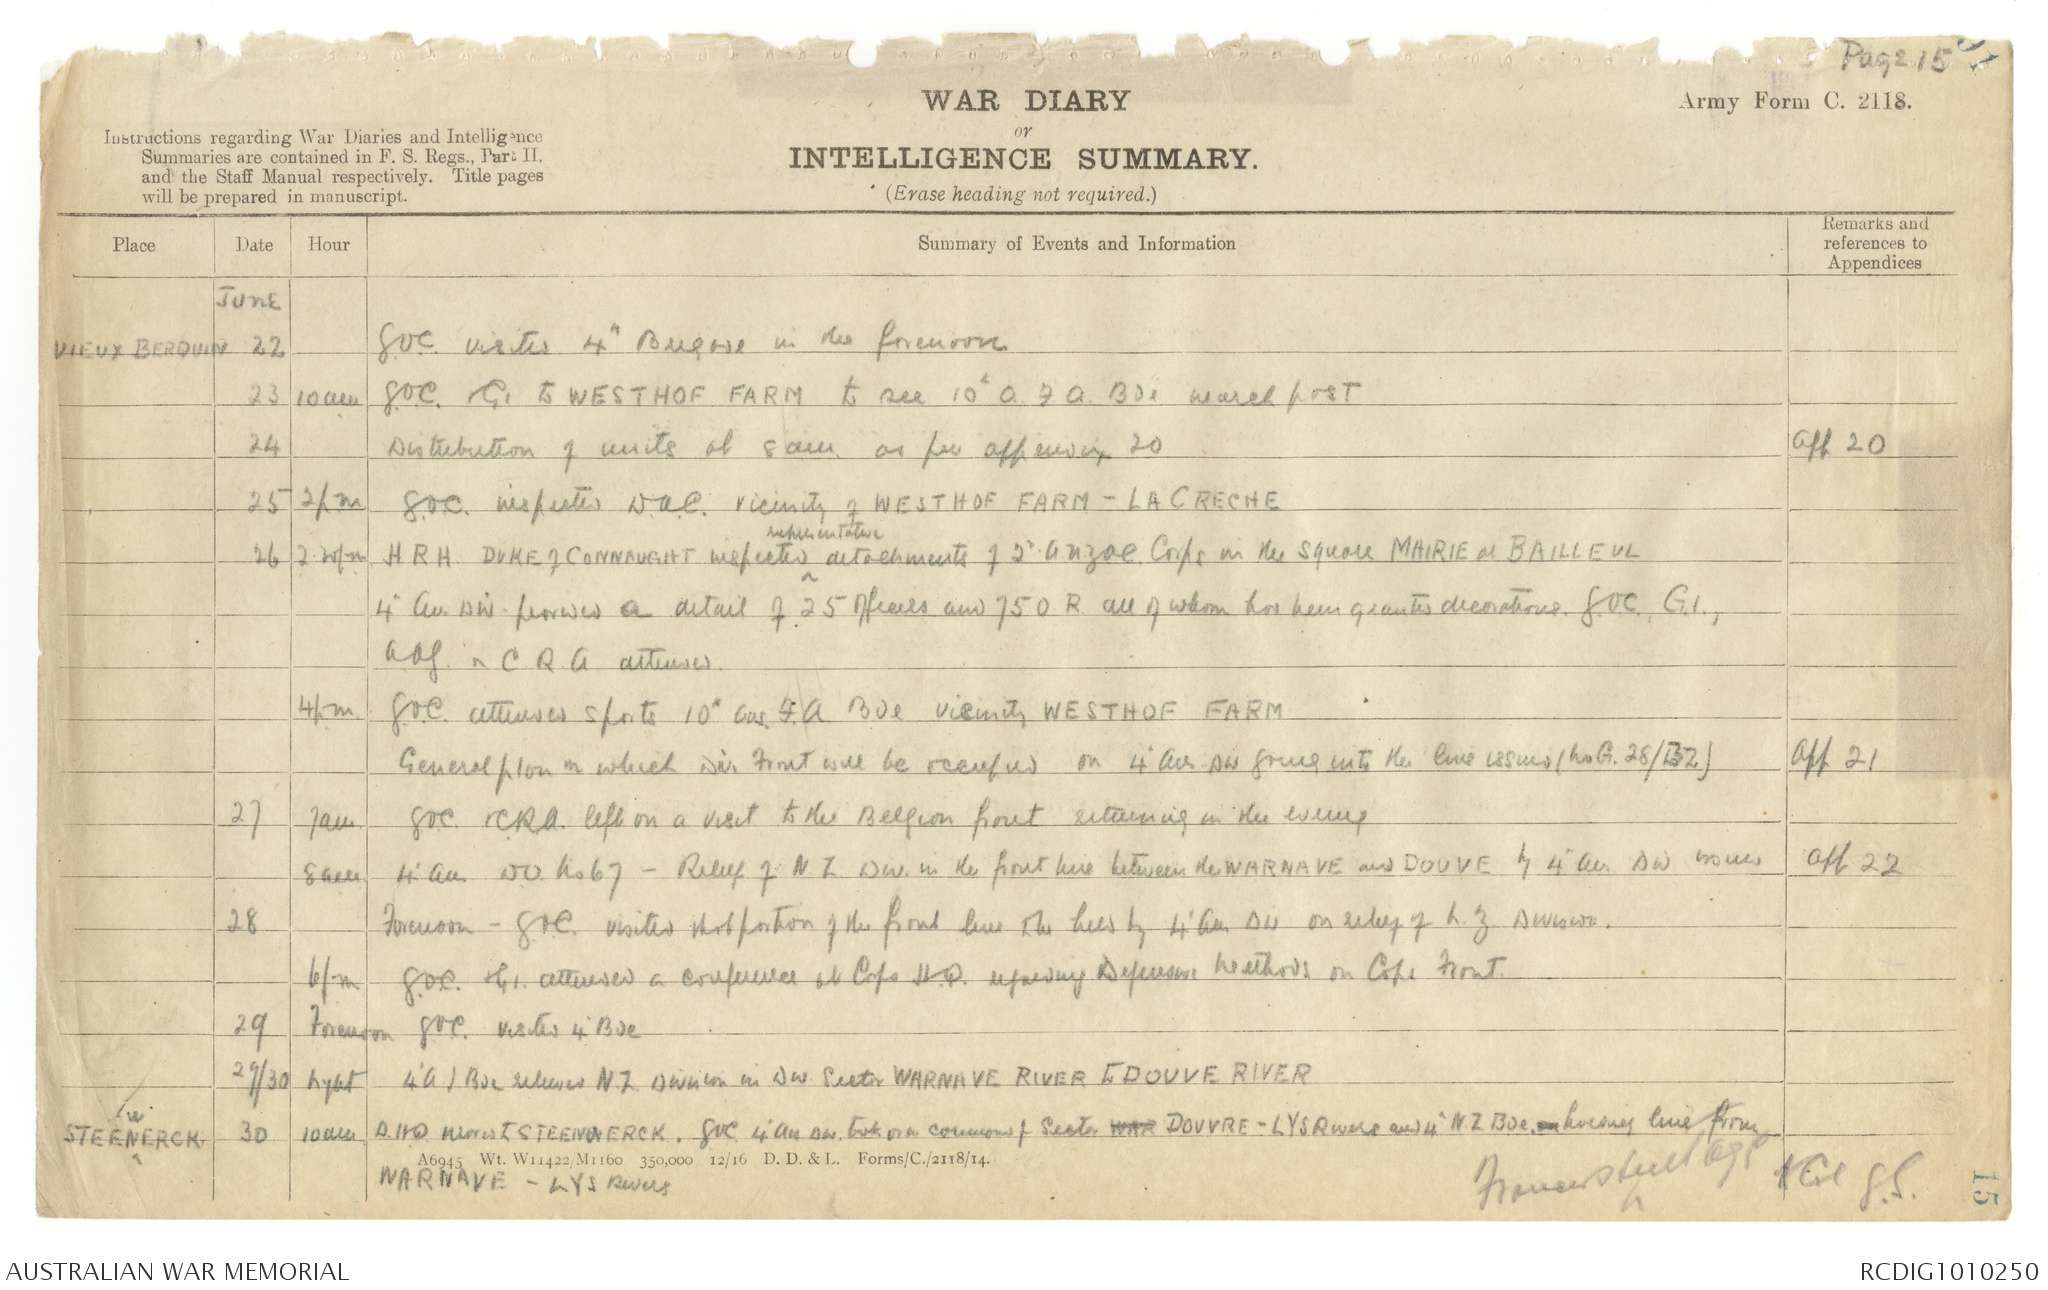 Page 15
Army Form C. 2118.
WAR DIARY
or
INTELLIGENCE SUMMARY.
(Erase heading not required.)
Instructions regarding War Diaries and Intelligence
Summaries are contained in F. S. Regs., Part II.
and the Staff Manual respectively. Title pages
will be prepared in manuscript.
Place Date Hour Summary of Events and Information Remarks and references to Appendices
JUNE
VIEUX BERQUIN 22 GOC. visited 4th Brigade in the forenoon
23 10am GOC. & G1 to WESTHOF FARM to see 10th A. F. A. Bde march post
24 Distribution of units at 8 am as per appendix 20 App 20
25 2pm GOC. inspected D.A.C. vicinity of WESTHOF FARM - LA CRECHE
representative
26 2.20pm H R H. DUKE of CONNAUGHT inspected ^ detachments of 2nd Anzac Corps in the square MAIRIE at BAILLEUL
4 Aus Div. provided a detail of 25 Officers and 75 O R all of whom has been granted decorations. GOC, G.1.,
ADJ. & C R. A attended.
4pm GOC. attended sports 10th Aus F.A Bde vicinity WESTHOF FARM
General plan on which Div. Front will be occupied on 4 Aus Div going into the line issued (No G. 28/ ) App 21
27 7am GOC. & CRA. left on a visit to the Belgian front returning in the evening
8am 4 Aus DO No 67 - Relief of N Z Div. in the front line between the WARNAVE and DOUVE by 4 Aus Div issued App 22
28 Forenoon - GOC. visited that portion of the front line to be held by 4 Aus Div on relief of N. Z Division.
6pm GOC. & G1. attended a conference at Corps H.Q. regarding Defensive Methods on Corps Front.
29 Forenoon GOC. visited 4 Bde
29/30 Night 4 A I Bde relieved N.Z Division in Div. Sector WARNAVE RIVER to DOUVE RIVER
we
STEENERCK 30 10am D.HQ moved to STEENWERCK. GOC 4 Aus Div. took over command of Sector WAR DOUVRE - LYS Rivers and 4th N.Z Bde. holding line from
WARNAVE - LYS Rivers
A6945 Wt. W11422/M1160 350,000 12/16 D. D. & L. Forms/C./2118/14.
Col G.S.
15
AUSTRALIAN WAR MEMORIAL
RCDIG1010250